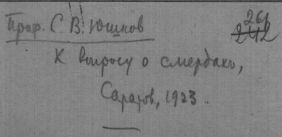 Проф. С. В. Юшков
261
К вопросу о смердах,
Саратов, 1923.